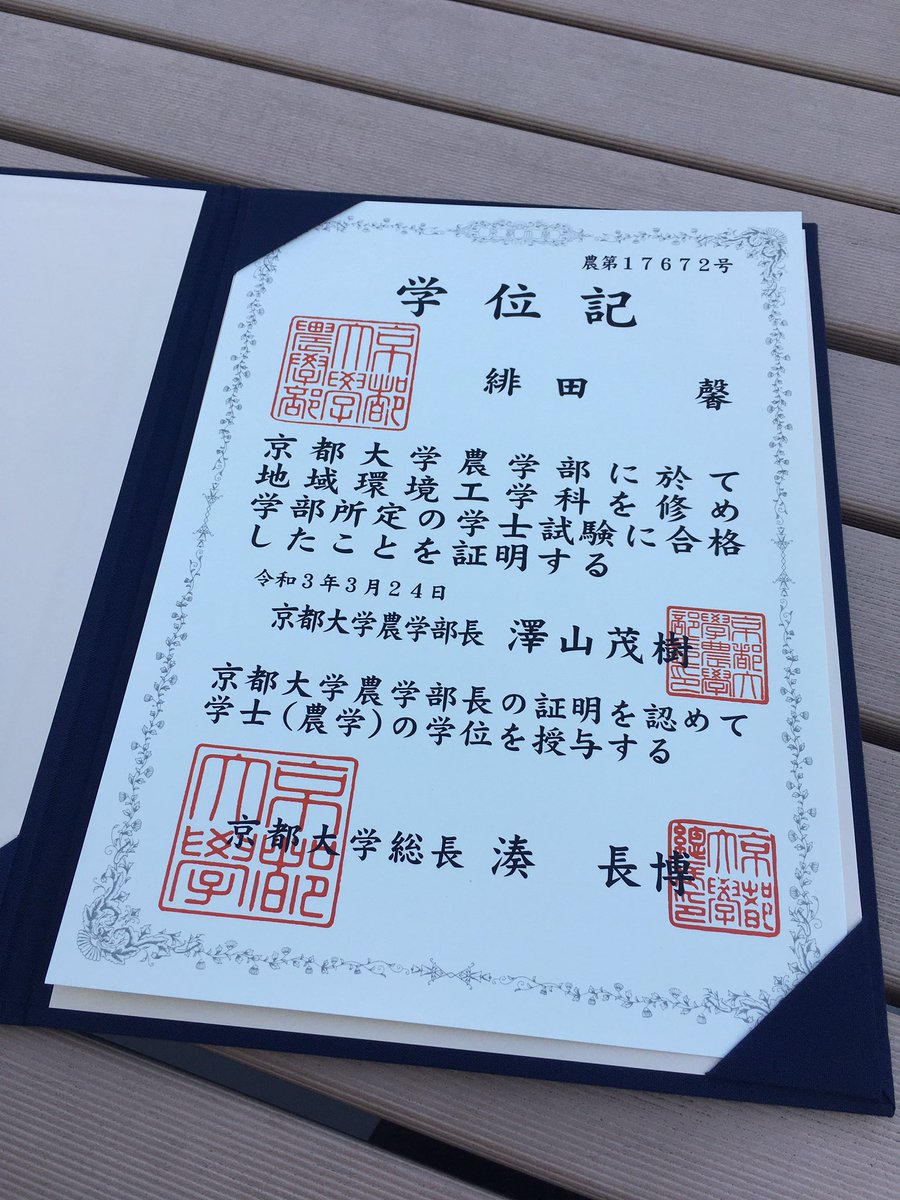 農第17672号
学位記
緋田 馨
京都大学農学部に於て
地域環境工学科を修め
学部所定の学士試験に合格
したことを証明する
令和3年3月24日
京都大学農学部長 澤山茂樹
京都大学農学部長の証明を認めて
学士(農学)の学位を授与する
京都大学総長 湊 長博
京都大學農學部
京都大學農學部長印
京都大學
京都大學總長印